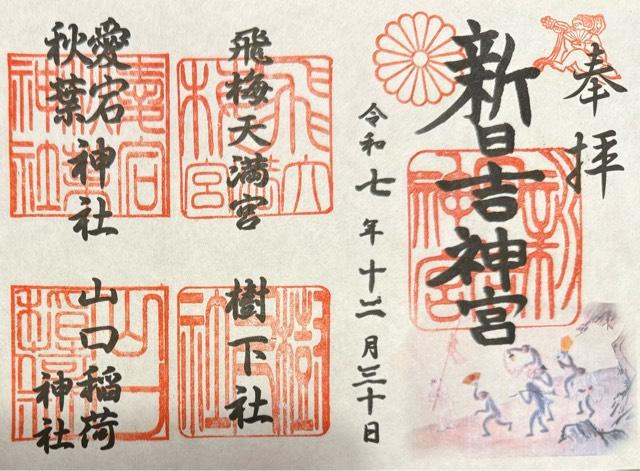 奉拝
新日吉神宮
令和七年十二月三十日
飛梅天満宮
樹下社
愛宕
秋葉神社
山口稲荷
神社